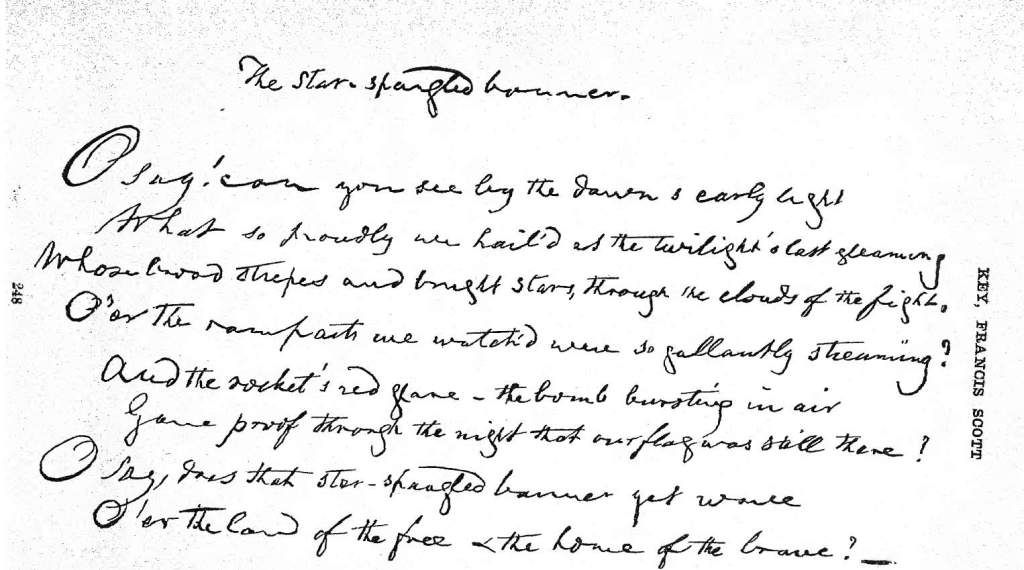 The star-spangled banner.
O say! can you see by the dawn s early light
What so proudly we hail'd at the twilight's last gleaming
Whose broad stripes and bright stars, through the clouds of the fight.
O'er the ramparts we watch'd were so gallantly streaming?
And the rocket's red glare - the bomb bursting in air
Gave proof through the night that our flag was still there!
O say, does that star-spangled banner yet wave
O'er the land of the free & the home of the brave? —
248
KEY, FRANCIS SCOTT